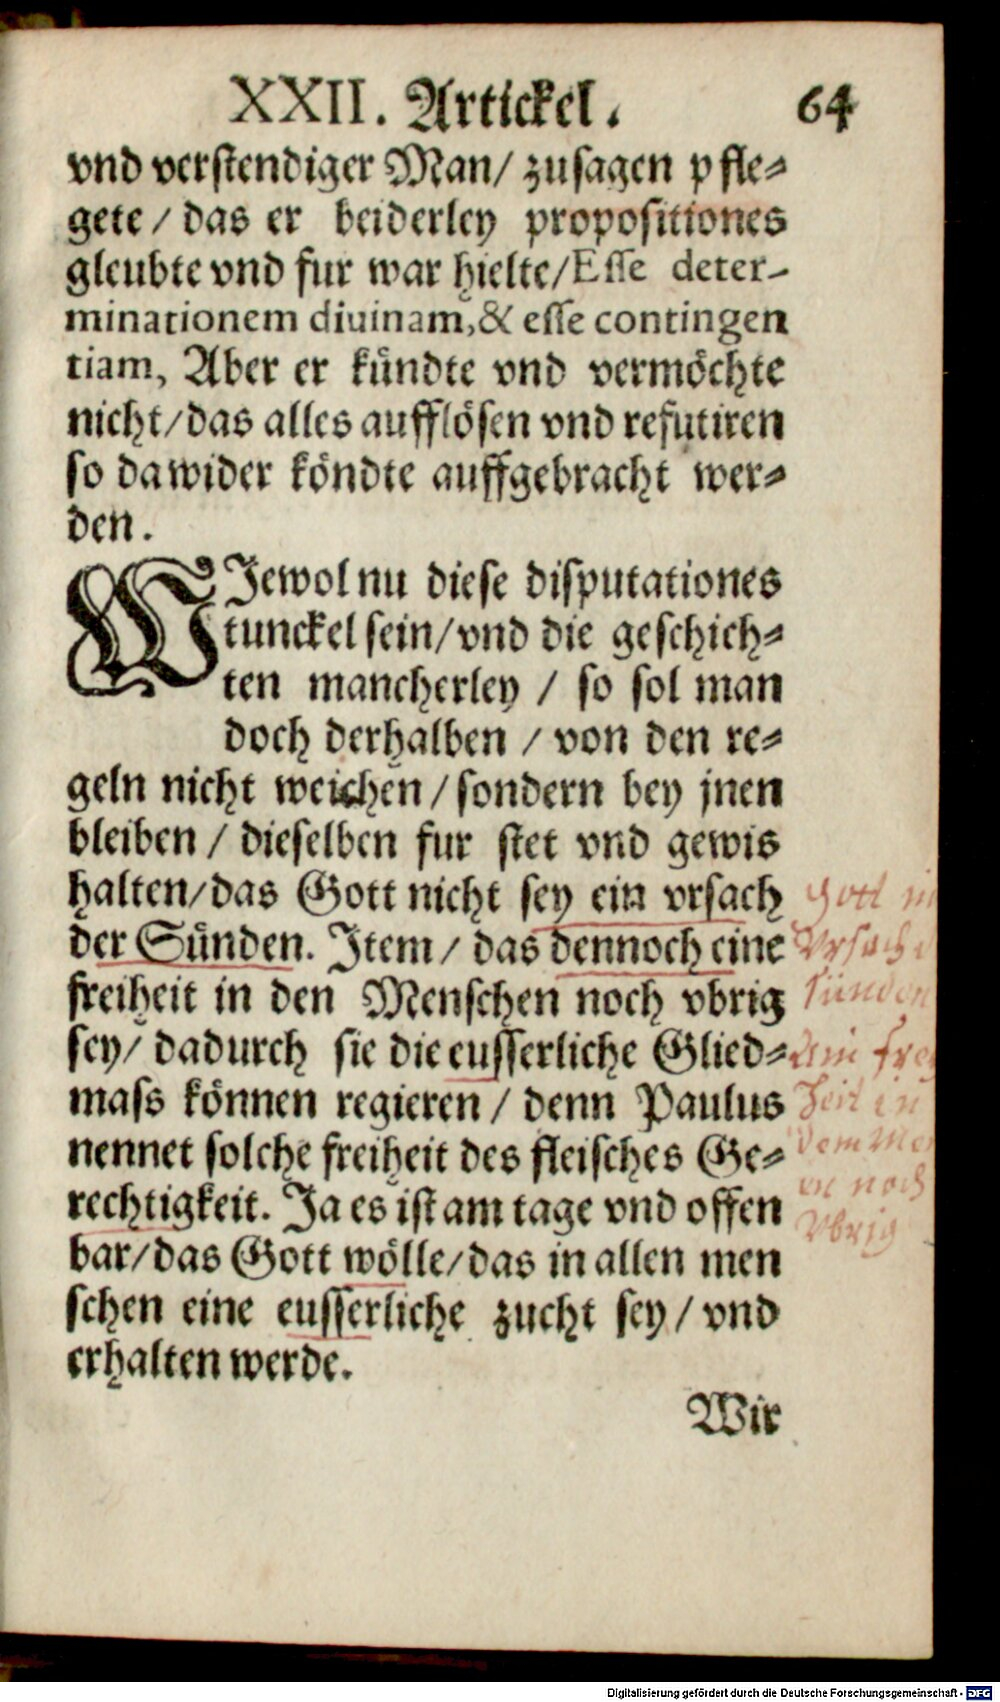 XXII. Artickel. 64
vnd verstendiger Man/ zusagen pfle⸗
gete / das er beiderley propositiones
gleubte vnd fur war hielte/Esse deter-
minationem diuinam,& esse contingen
tiam, Aber er kündte vnd vermöchte
nicht/das alles aufflösen vnd refutiren
so dawider köndte auffgebracht wer⸗
den.
WJewol nu diese disputationes
tunckel sein/vnd die geschich⸗
ten mancherley / so sol man
doch derhalben / von den re⸗
geln nicht weichen / sondern bey jnen
bleiben / dieselben fur stet vnd gewis
halten/das Gott nicht sey ein vrsach
der Sünden. Item / das dennoch eine
freiheit in den Menschen noch vbrig
sey/ dadurch sie die eusserliche Glied⸗
mass können regieren / denn Paulus
nennet solche freiheit des fleisches Ge⸗
rechtigkeit. Ja es ist am tage vnd offen
bar/das Gott wölle/das in allen men
schen eine eusserliche zucht sey / vnd
erhalten werde.
Wir
Gott
Vrsach
sünden
in
noch
Vbrig
Digitalisierung gefördert durch die Deutsche Forschungsgemeinschaft - DFG